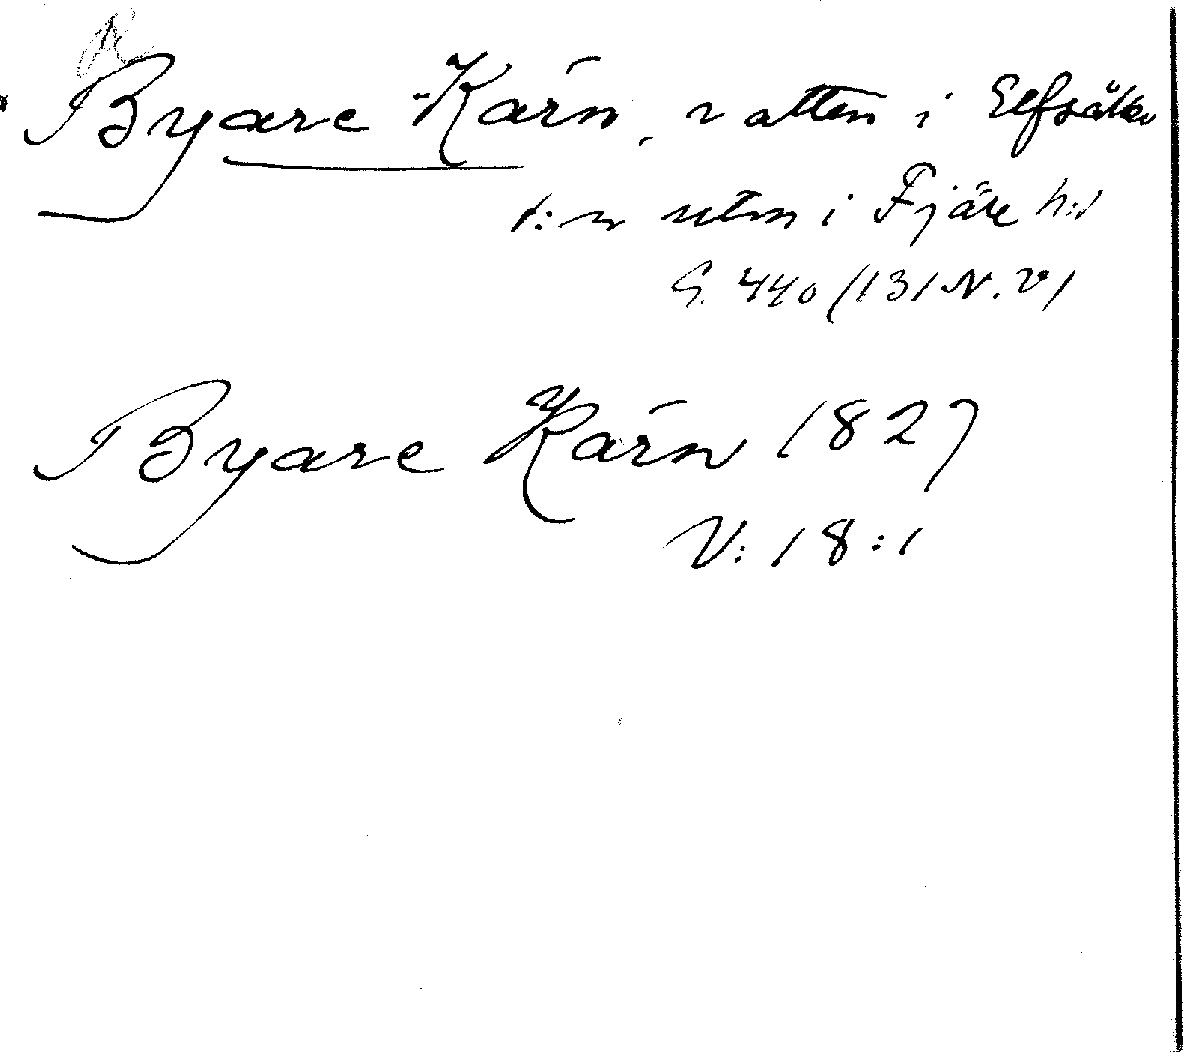 Byare-Kärn, vatten i Elfsåker
s:n uten i Fjäre h:d
S. 440 (131 N.V)
Byare Kärn 1827
V:18:1